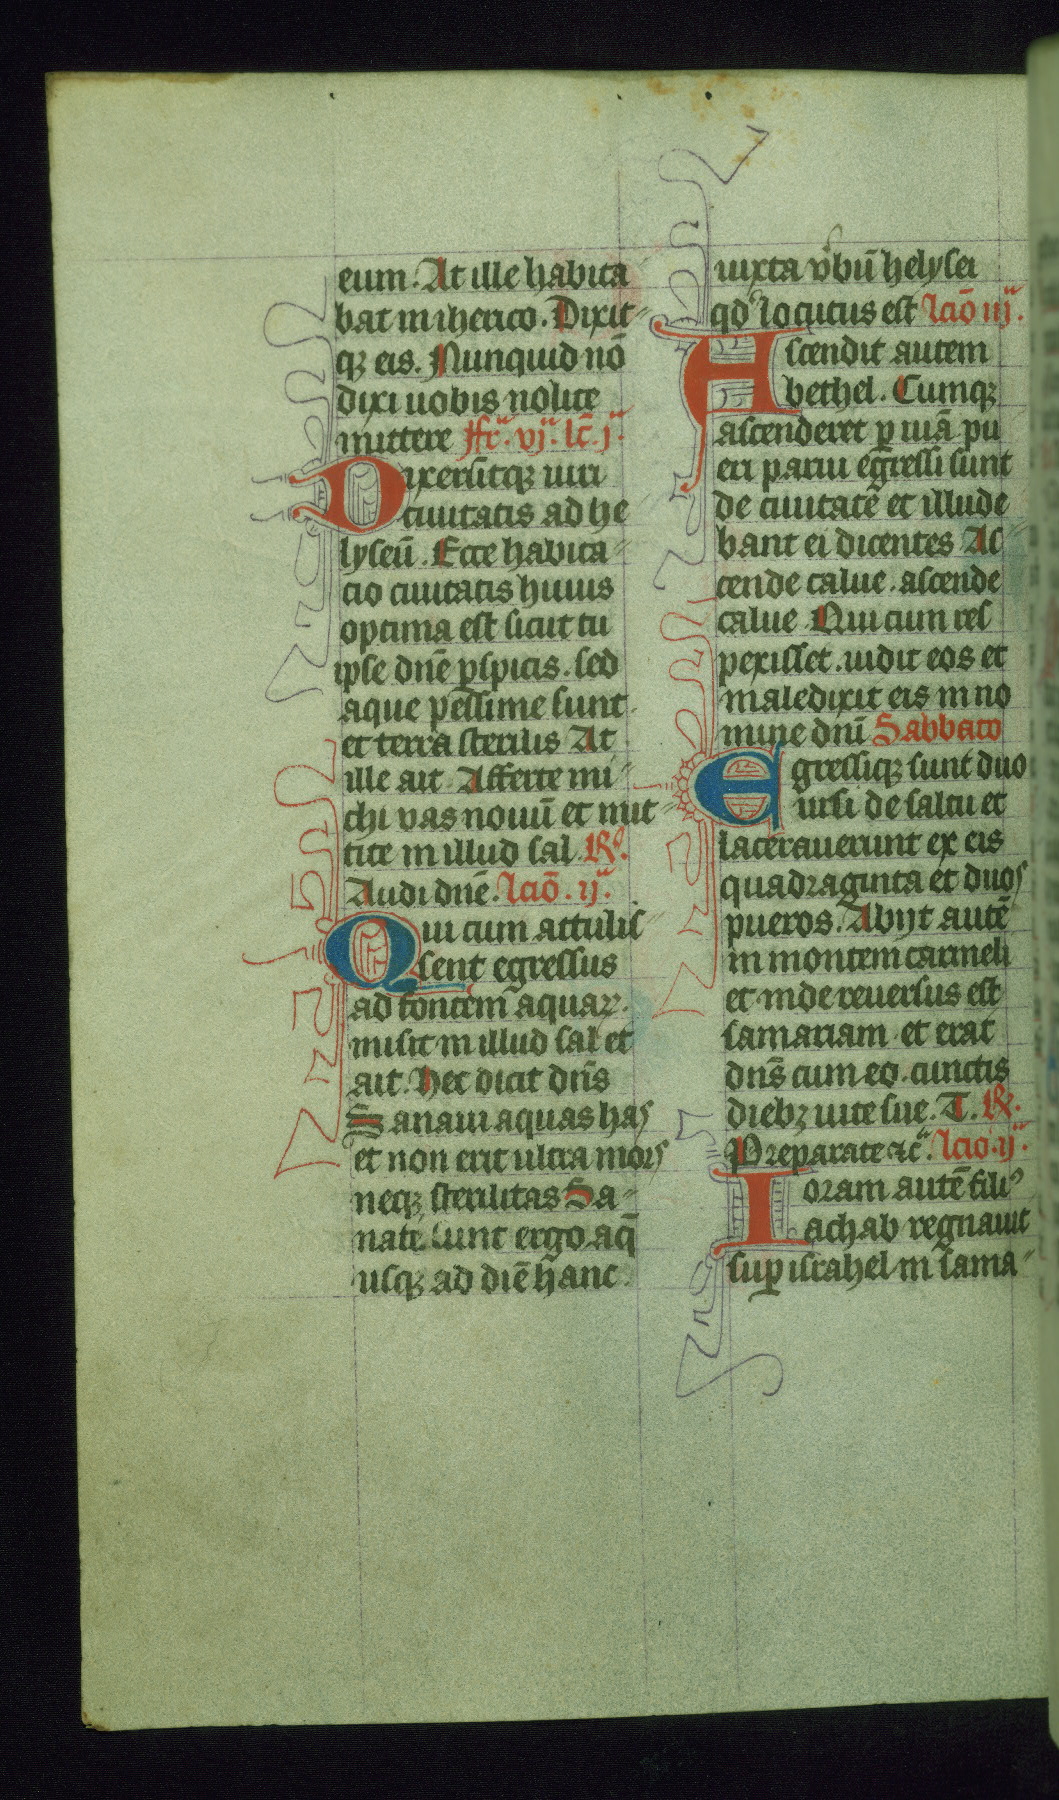 eum. At ille habita
bat in iherico. Dixit-
qꝫ eis. Nunquid nō
dixi uobis nolite
mittere ffrͣ. vjͣ. lc̄. jͣ.
Dixeru̅tqꝫ uiri
ciuitatis ad he
lyseū. Ecce habita-
cio ciuitatis huius
optima est sicut tu
ipse dn̄e ꝑspicis. sed
aque pessime sunt.
et terra sterilis At
ille ait. Afferte mi-
chi vas nouū et mit-
tite in illud sal. R͛.
Audi dn̄e. lctō. ijͣ.
Qui cum attulis-
sent egressus
ad fontem aquaꝝ.
misit in illud sal et
ait. Hec dicit dn̄s
Sanaui aquas has
et non erit ultra mors
neqꝫ sterilitas Sa-
nate sunt ergo aq̄
usqꝫ ad diē hanc.
iuxta v̓bū helysei
qd̓ locutus est lctō iijͣ.
Ascendit autem
bethel. Cumqꝫ
ascenderet ꝑ uiā pu
eri parui egressi sunt
de ciuitatē et illude
bant ei dicentes As
cende calue. ascende
calue. Qui cum res
pexisset. uidit eos et
maledixit eis in no
mine dn̄i Sabbato
Egressiqꝫ sunt duo
ursi de saltu et
lacerauerunt ex eis
quadraginta et duos
pueros. Abijt autē
in montem carmeli
et inde reuersus est
samariam et erat
dn̄s cum eo. cunctis
diebꝫ uite sue. T. R͛.
Preparate ⁊c̄. lctō. ijͣ.
Ioram autē filiꝰ
achab regnauit
suꝑ israhel in sama-